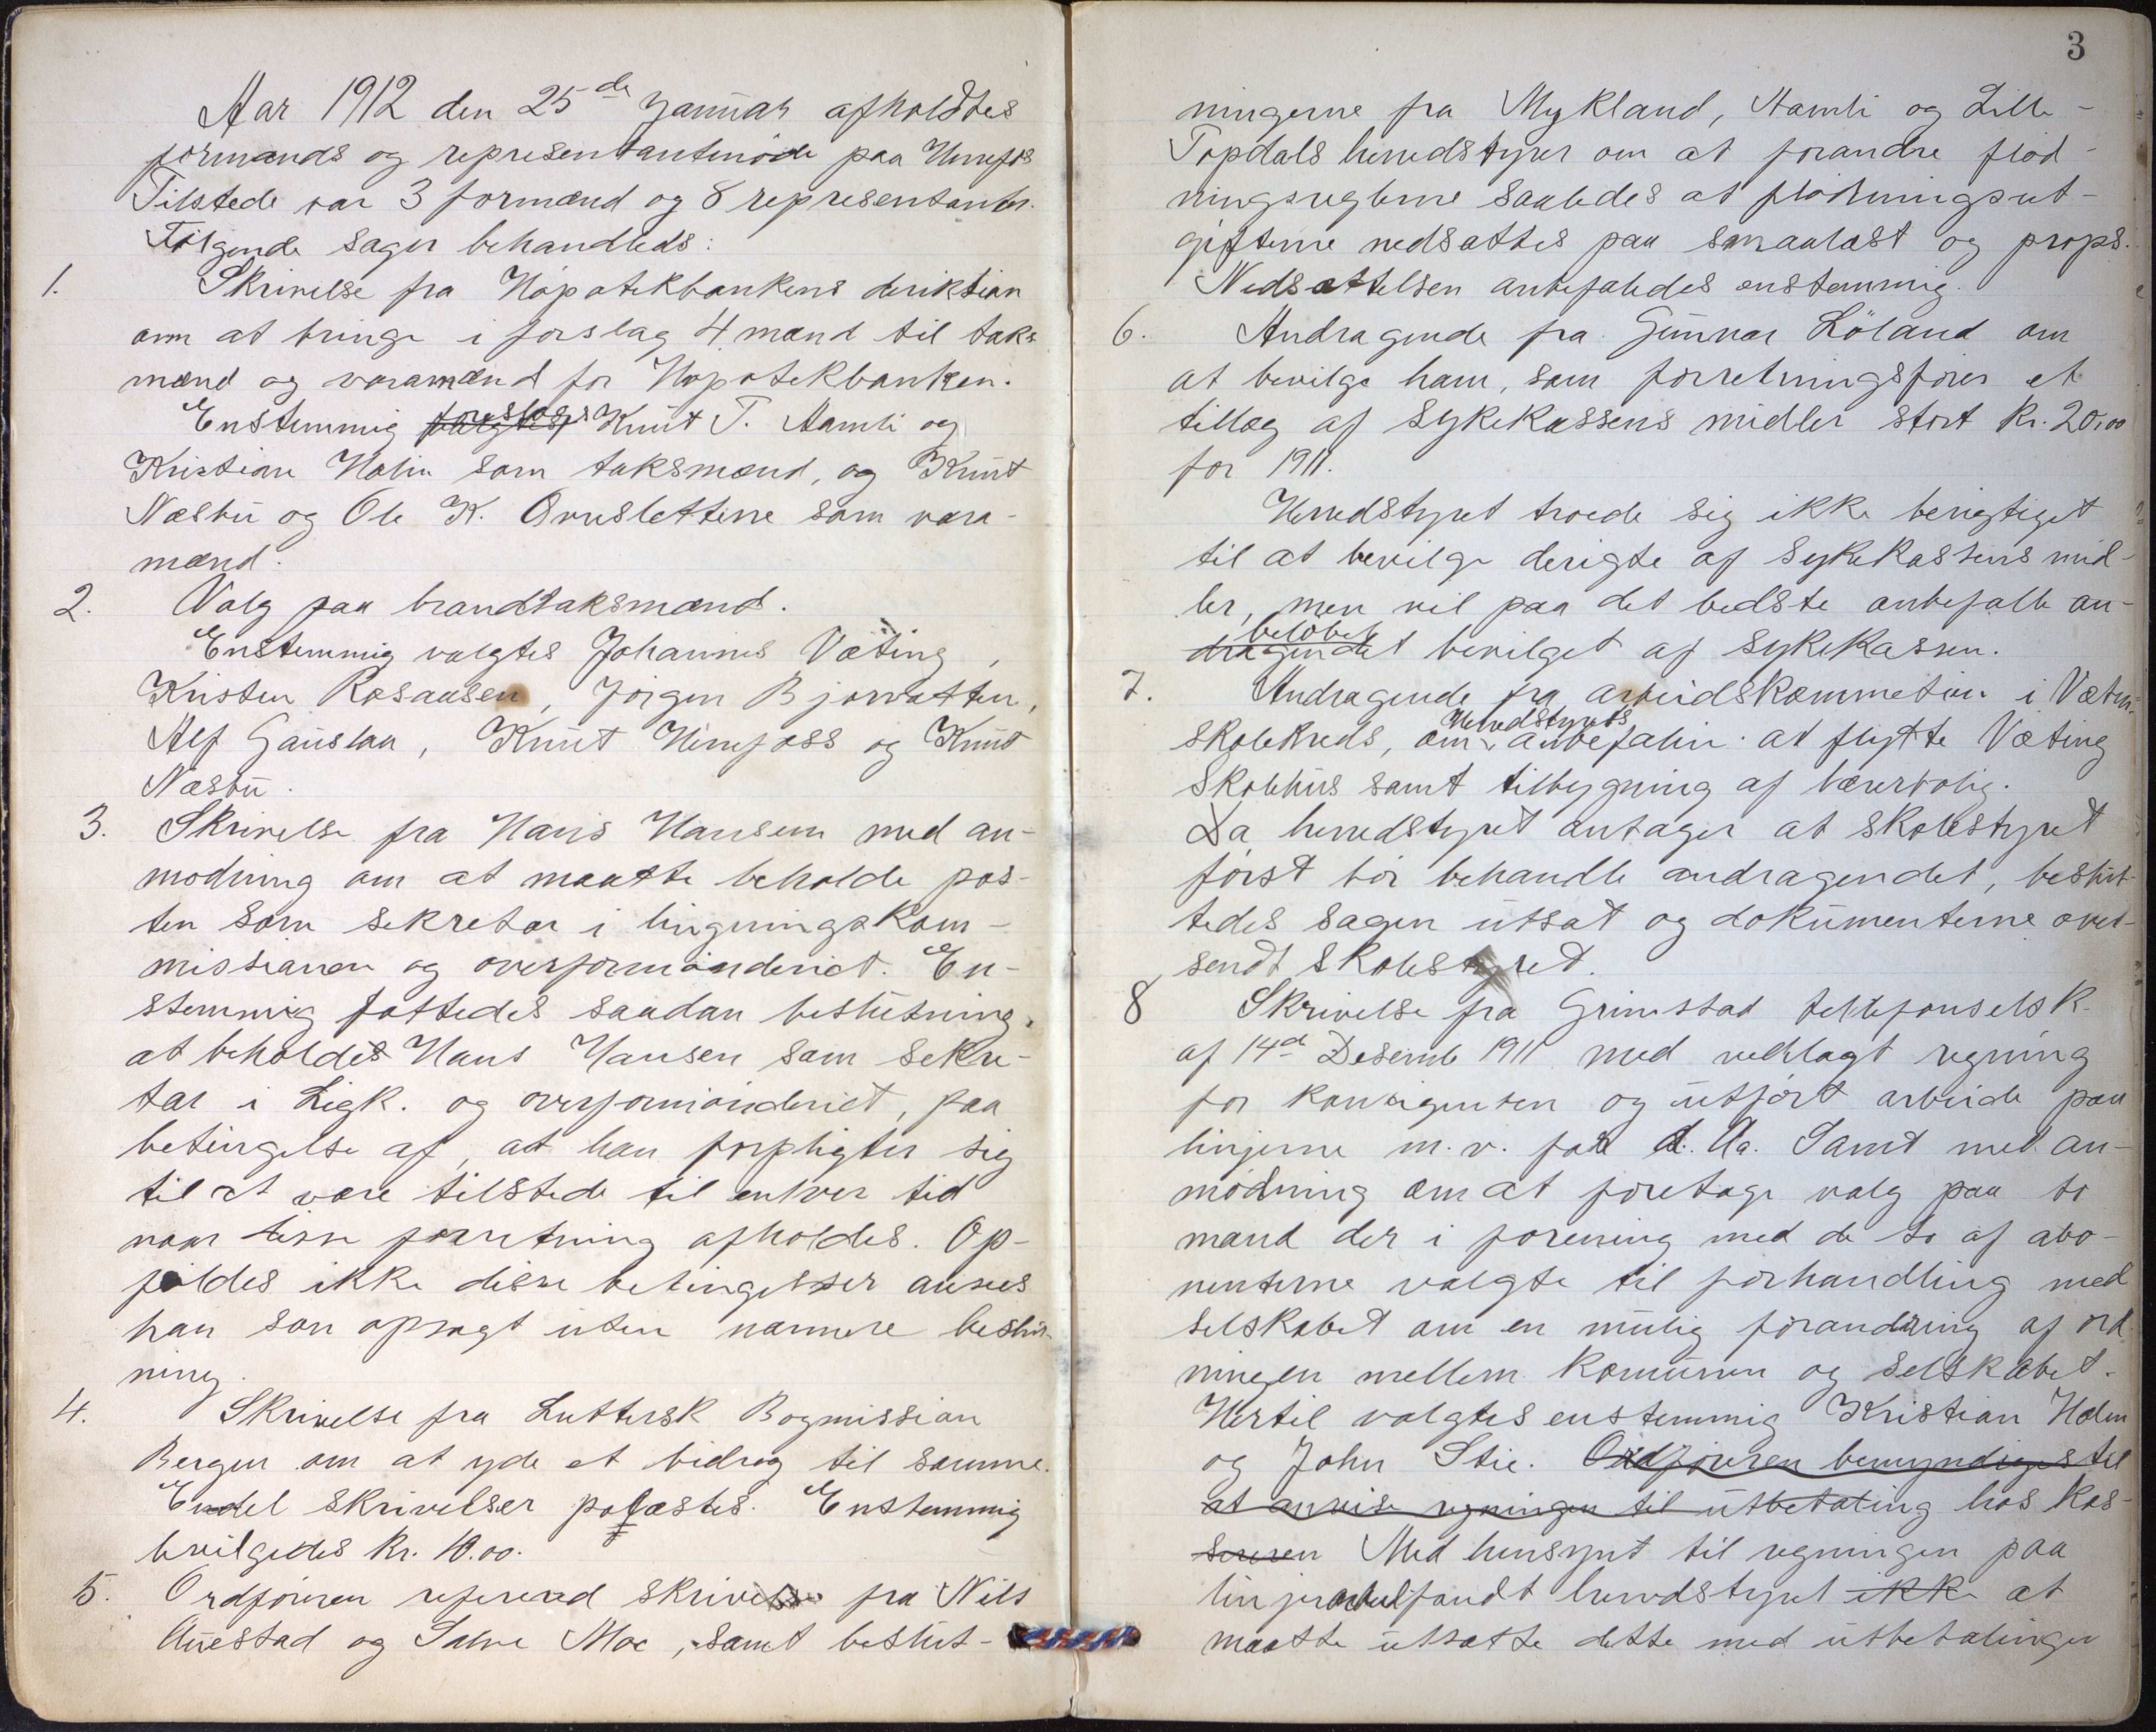 Aar 1912 den 25de Januar afholdtes
formands og representantmöde paa Herefos
Tilstede var 3 formænd og 8 representanter.
Følgende sager behandleds:
1. Skrivelse fra Hópotekbankens deriktion
om at bringe i forslag 4 mænd til taks
mænd og varamænd for Hypotekbanken.
Enstemmig foreslaaes Knut T. Aamli og
Kristian Holm som taksmænd, og Knut
Næsbu og Ole K. Ovnslettene som vara-
mænd.
2. Valg paa brandtaksmænd.
Enstemmig valgtes Johannes Væting,
Kristen Rosaasen, Jörgen Bjorvatten,
Alf Gauslaa, Knut Herefoss og Knut
Næsbu.
3. Skrivelse fra Hans Hansen med an-
modning om at maatte beholde pos-
ten som sekretær i ligningskom-
missionen og overformönderiet. En-
stemmig fattedes saadan beslutning,
at beholdes Hans Hansen som sekre-
tær i Ligk. og overformönderiet, paa
betingelse af, at han forpligter sig
til at være tilstede til enhver tid
naar disse forretning afholdes. Op-
fyldes ikke disse betingelser ansees
han som opsagt uten nærmere beslut-
ning.
4. Skrivelse fra Luthersk Bogmission
Bergen om at yde et bidrag til samme.
Endel skrivelser polæstes. Enstemmig
bevilgedes Kr. 10.00.
5. Ordföreren referered skrivelse fra Nils
Auestad og Salve Moe, samt beslut-
3
ningerne fra Mykland, Aamli og Lille-
Topdals herredstyrer om at forandre flöd-
ningsreglerne saaledes at flödningsut-
gifterne nedsattes paa smaalast og props.
Nedsættelsen anbefaledes enstemmig.
6. Andragende fra Gunnar Löland om
at bevilge ham, som forretningsförer et
tillæg af sykekassens midler stort Kr. 20,00
for 1911.
Herredstyret troede sig ikke berigtiget
til at bevilge derigte af sykekassens mid-
ler, men vil paa det bedste anbefalle an-
belöbet
dragendet bevilget af sykekassen.
7. Andragende fra arbeidskommetien i Væting
Herredstyrets
skolekreds, om anbefalin at flytte Væting
skolehus samt tilbygning af lærerbolig.
Da herredstyret antager at skolestyret
först bör behandle andragendet, beslut-
tedes sagen utsat og dokumenterne over-
sendt skolestyret.
8 Skrivelse fra Grimstad telefonselsk.
af 14de Desemb 1911 med vedlagt regning
for kontigensen og utfört arbeide paa
linjerne m.v. for d. Aa. Samt med an-
modning om at foretage valg paa to
mænd der i forening med de to af abo-
nenterne valgte til forhandling med
selskabet om en mulig forandring af ord
ningen mellem komunen og selskabet.
Hertil valgtes enstemmig Kristian Holm
og John Stie. Ordföreren bemyndiges til
at anvise regningen til utbetaling hos kas-
sereren Med hensynt til regningen paa
linjer fandt herredstyret ikke at
maatte utsætte dette med utbetalingen